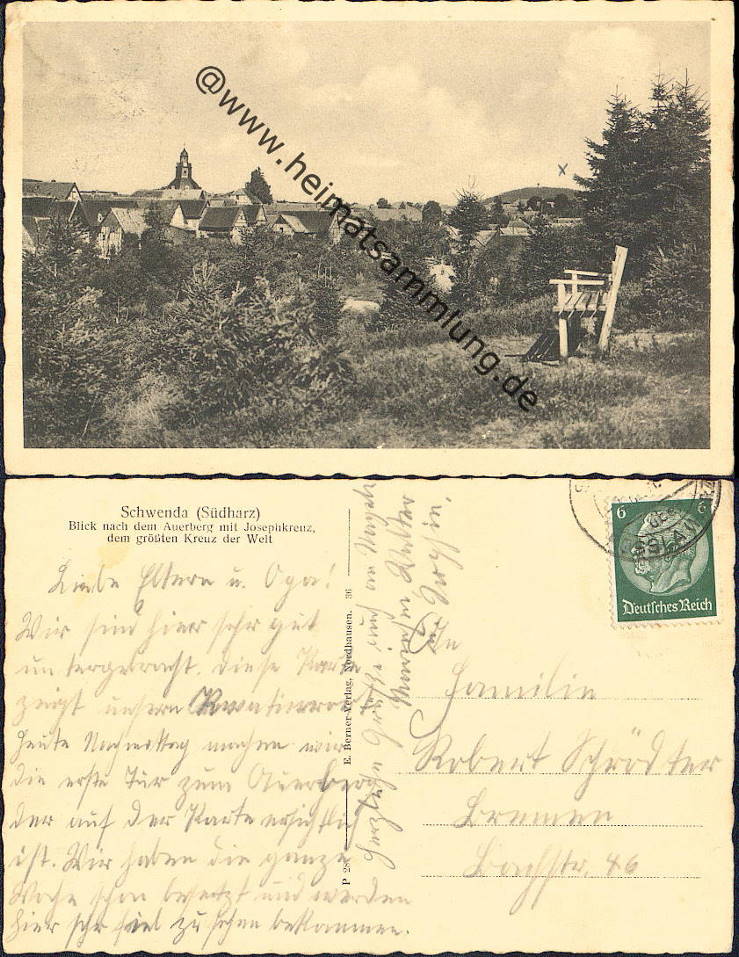 @www.heimatsammlung.de
x
Schwenda (Südharz)
Blick nach dem Auerberg mit Josephkreuz,
dem größten Kreuz der Welt
Liebe Eltern u. Opa!
Wir sind hier sehr gut
untergebracht. Diese Karte
zeigt unsern
Heute Nachmittag machen wir
die erste Tur zum Auerberg
der auf der Karte ersichtlich
ist. Wir haben die ganze
Woche schon besetzt und werden
hier sehr viel zu sehen bekommen.
Herzliche Grüße und an
Walter
P 28
E. Berner-Verlag, Nordhausen. 36
6 6
Deutsches Reich
An
Familie
Robert Schrödter
Bremen
Bachstr. 46